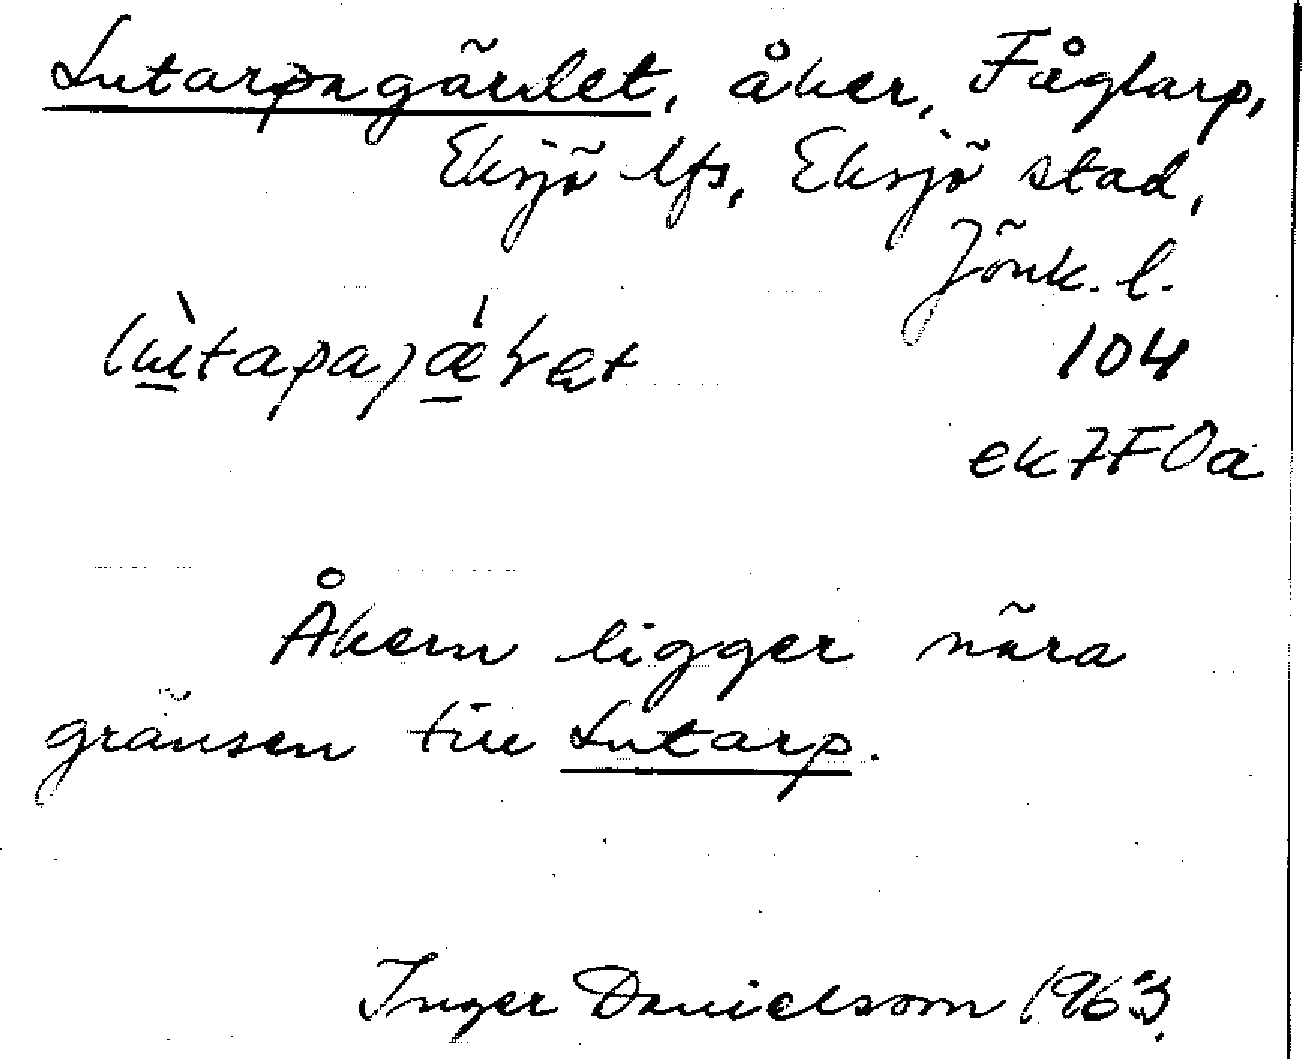 Lutarpagärdet, åker, Fåglarp,
Eksjö lfs, Eksjö stad,
Jönk. l.
104
ek 7F0a
Åkern ligger nära
gränsen till Lutarp.
Inger Danielsson 1963